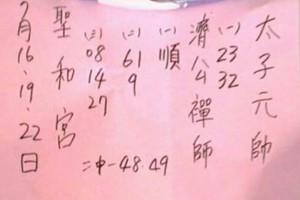 太子元帥
(一) 23 32
濟公禪師
(一) 順
(二) 61 9
(三) 08 14 27
二中一48.49
聖和宮
月16.19.22日